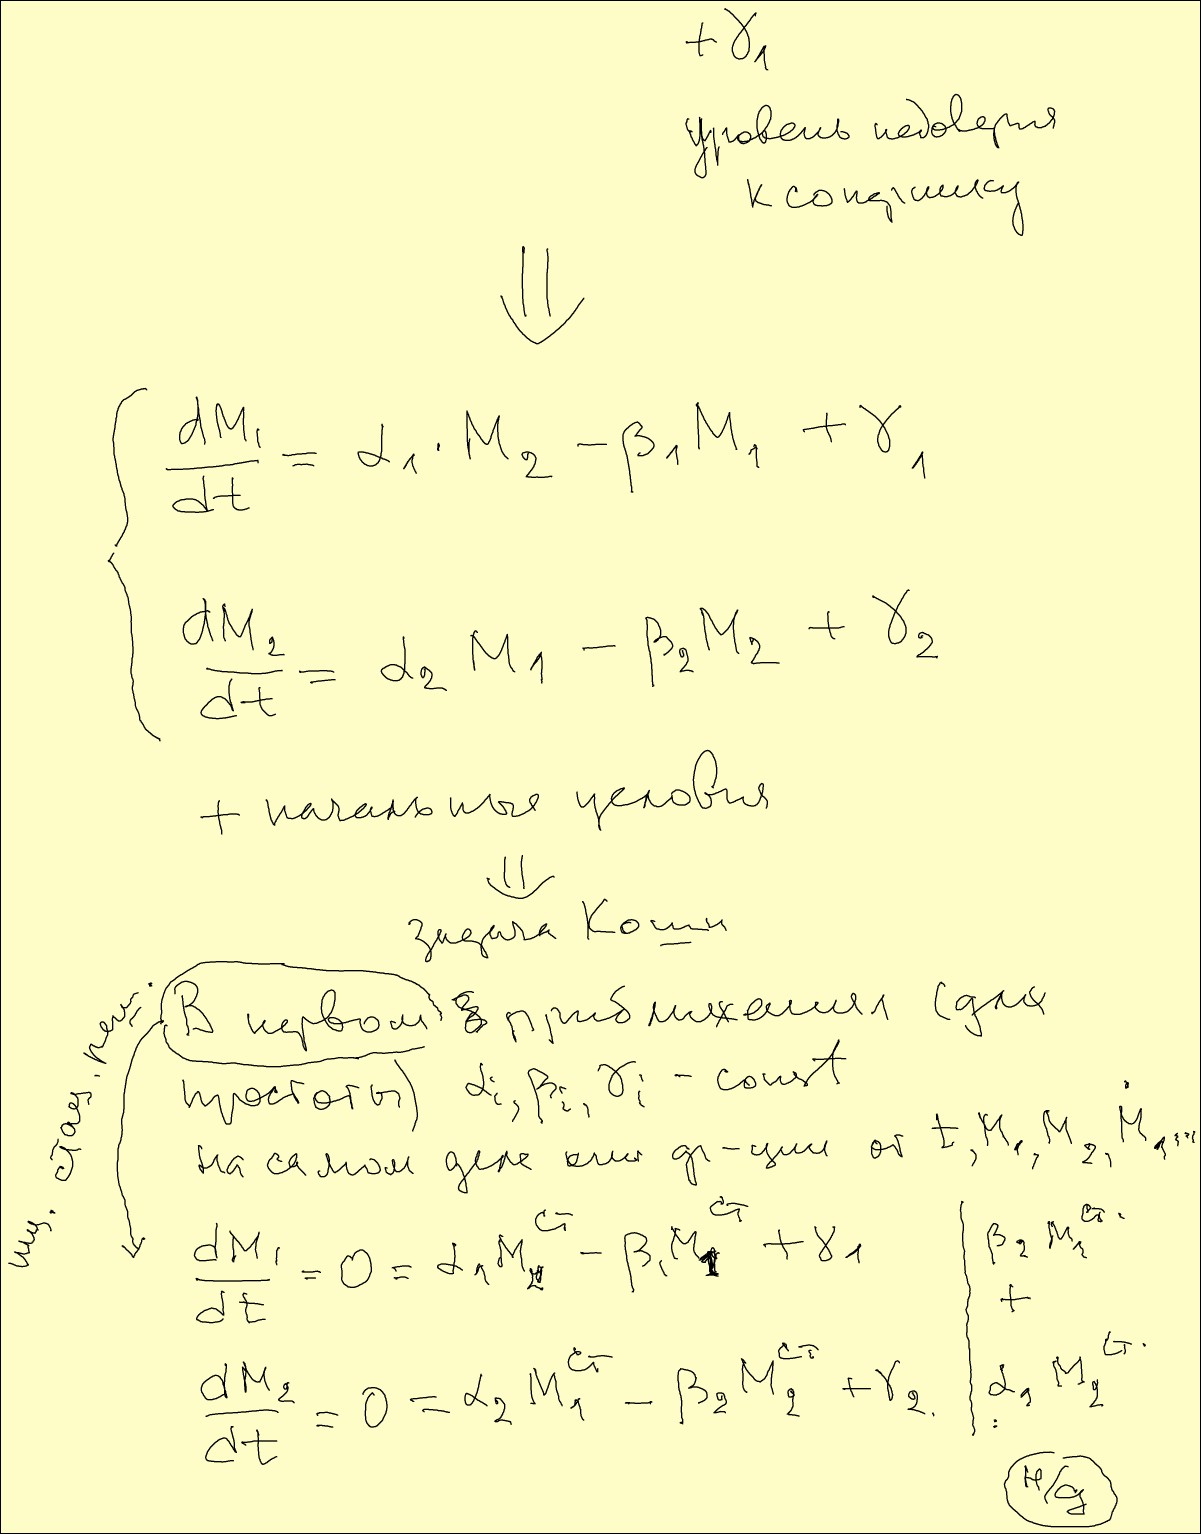 + γ₁
уровень недоверия
к соперnику
⇓
dM₁/dt = α₁ · M₂ − β₁M₁ + γ₁
dM₂/dt = α₂ M₁ − β₂M₂ + γ₂
+ начальные условия
⇓
задача Коши
ищ. стац. реш.
В первом приближении (для
простоты) αᵢ, βᵢ, γᵢ − const
на самом деле они ф-ции от t, M₁, M₂, Ṁ₁, ...
dM₁/dt = 0 = α₁M₂^ст − β₁M₁^ст + γ₁
dM₂/dt = 0 = α₂M₁^ст − β₂M₂^ст + γ₂.
β₂ M₁^ст.
+
α₁ M₂^ст.
н/д